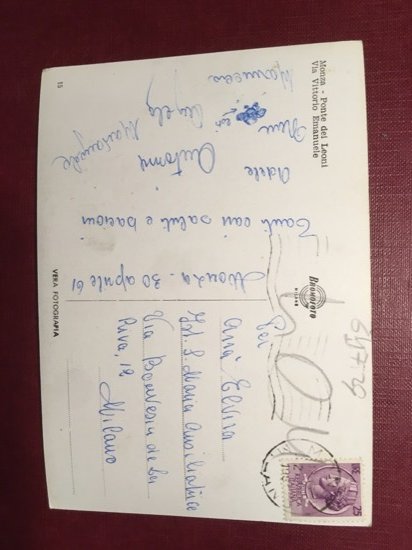 Monza - Ponte dei Leoni
Via Vittorio Emanuele
15
Monza. 30 aprile 61
Tanti cari saluti e bacioni
Adele
Antonia
Mariangela
Angelo
BROMOFOTO
MILANO
VERA FOTOGRAFIA
64779
Elvira
Ist. S. Maria Ausiliatrice
Via Bonvesin de la
Riva, 12
Milano
25